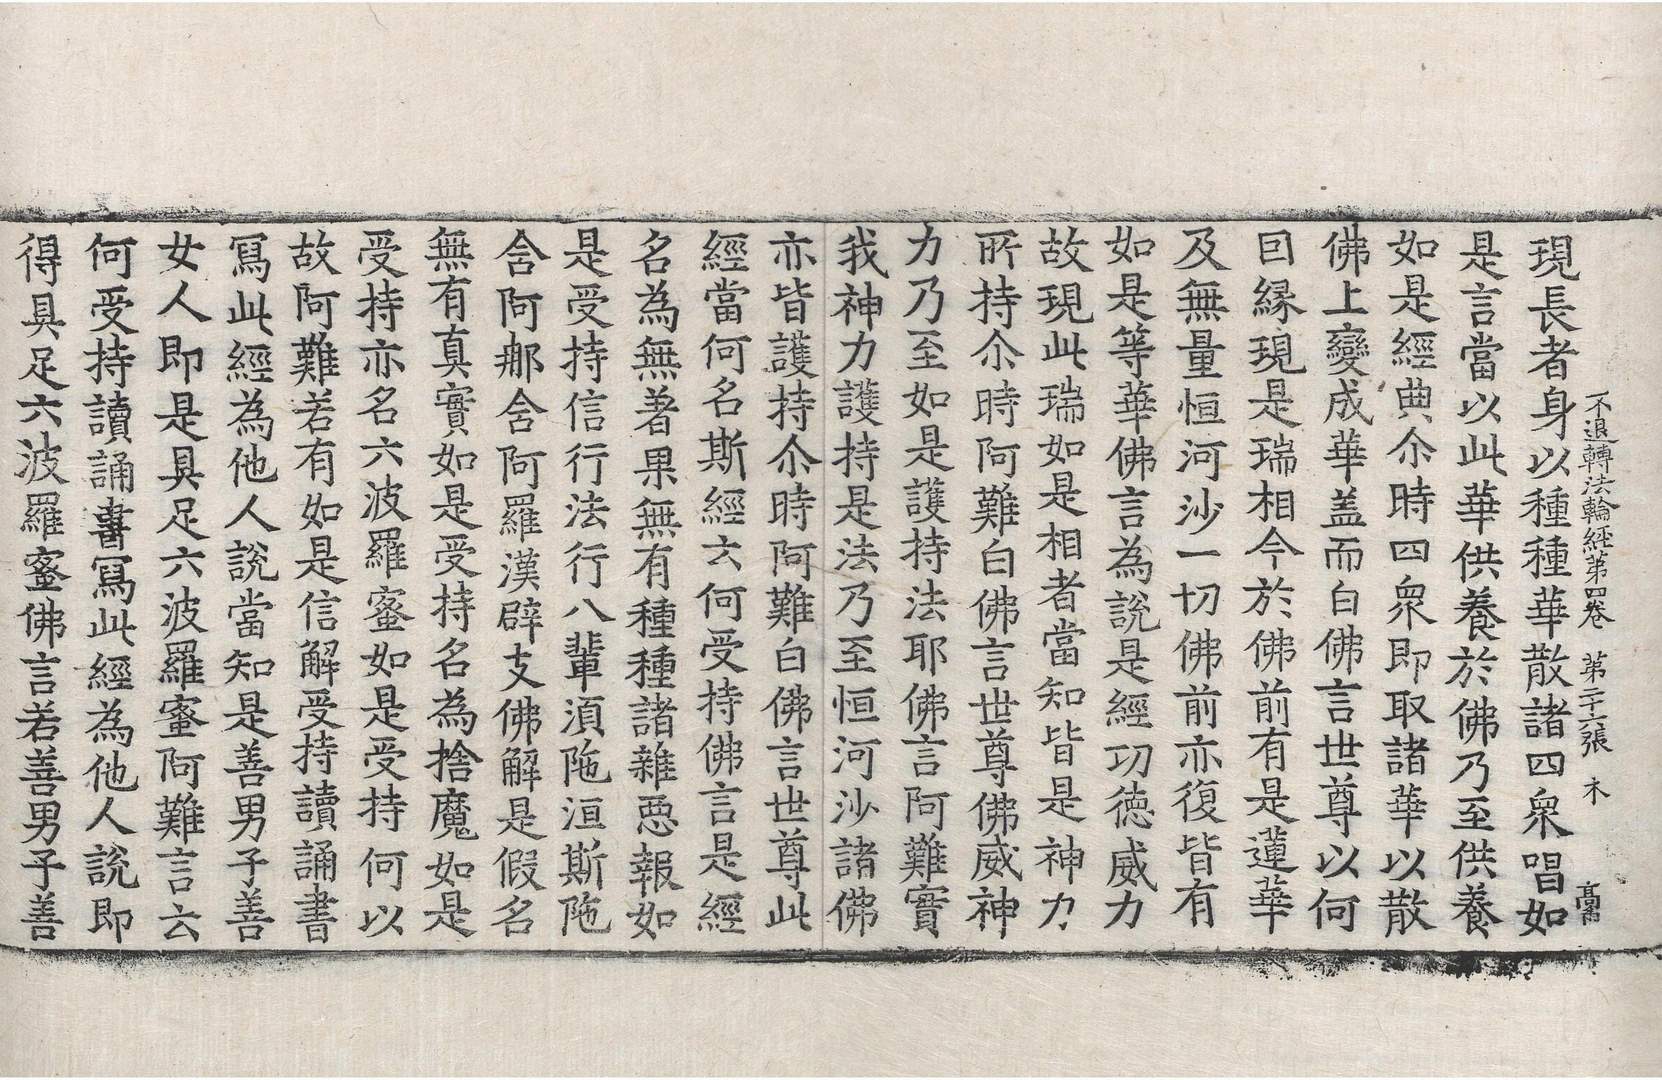 不退轉法輪經第四卷 第二十六張 木
現長者身以種種華散諸四衆唱如
是言當以此華供養於佛乃至供養
如是經典尒時四衆即取諸華以散
佛上變成華盖而白佛言世尊以何
因緣現是瑞相今於佛前有是蓮華
及無量恒河沙一切佛前亦復皆有
如是等華佛言為說是經功德威力
故現此瑞如是相者當知皆是神力
所持尒時阿難白佛言世尊佛威神
力乃至如是護持法耶佛言阿難實
我神力護持是法乃至恒河沙諸佛
亦皆護持尒時阿難白佛言世尊此
經當何名斯經云何受持佛言是經
名為無著果無有種種諸雜惡報如
是受持信行法行八輩湏陁洹斯陁
含阿那含阿羅漢辟支佛解是假名
無有真實如是受持名為捨魔如是
受持亦名六波羅蜜如是受持何以
故阿難若有如是信解受持讀誦書
寫此經為他人說當知是善男子善
女人即是具足六波羅蜜阿難言云
何受持讀誦書寫此經為他人說即
得具足六波羅蜜佛言若善男子善